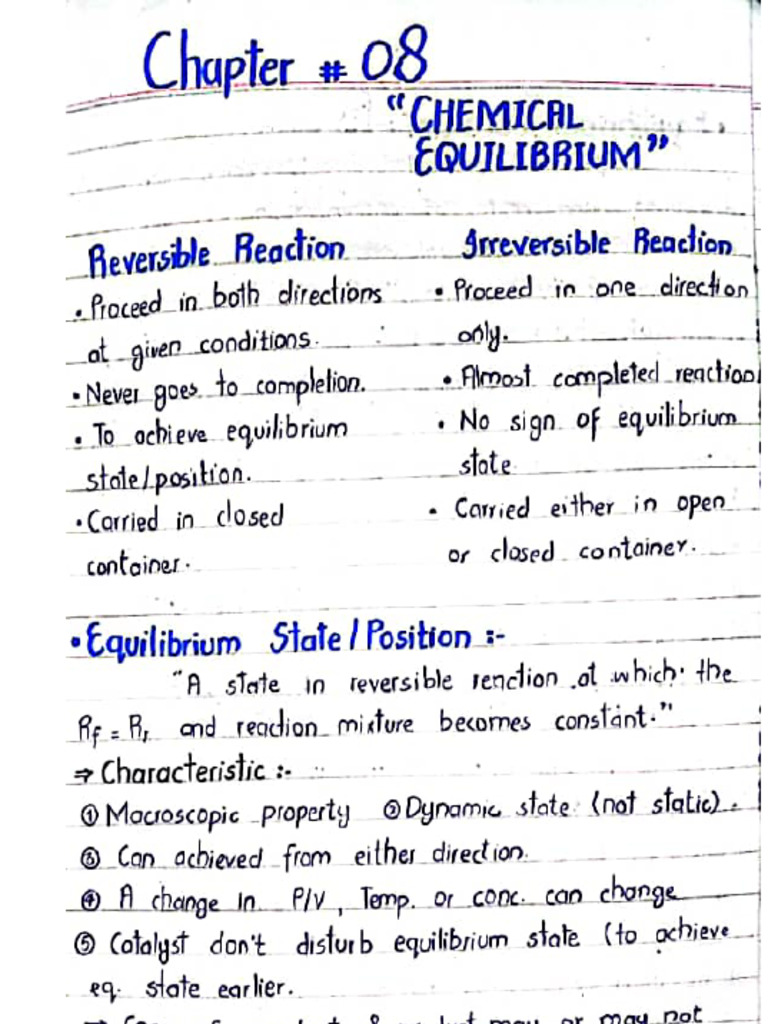 Chapter # 08
“CHEMICAL
EQUILIBRIUM”
Reversible Reaction
• Proceed in both directions
at given conditions.
• Never goes to completion.
• To achieve equilibrium
state/position.
• Carried in closed
container.
Irreversible Reaction
• Proceed in one direction
only.
• Almost completed reaction
• No sign of equilibrium
state
• Carried either in open
or closed container.
• Equilibrium State/Position :-
“A state in reversible reaction at which the
Rf = Rr and reaction mixture becomes constant.”
⇒ Characteristic :-
① Macroscopic property ② Dynamic state (not static).
③ Can achieved from either direction.
④ A change in P/V, Temp. or conc. can change
⑤ Catalyst don't disturb equilibrium state (to achieve
eq. state earlier.
may or may not